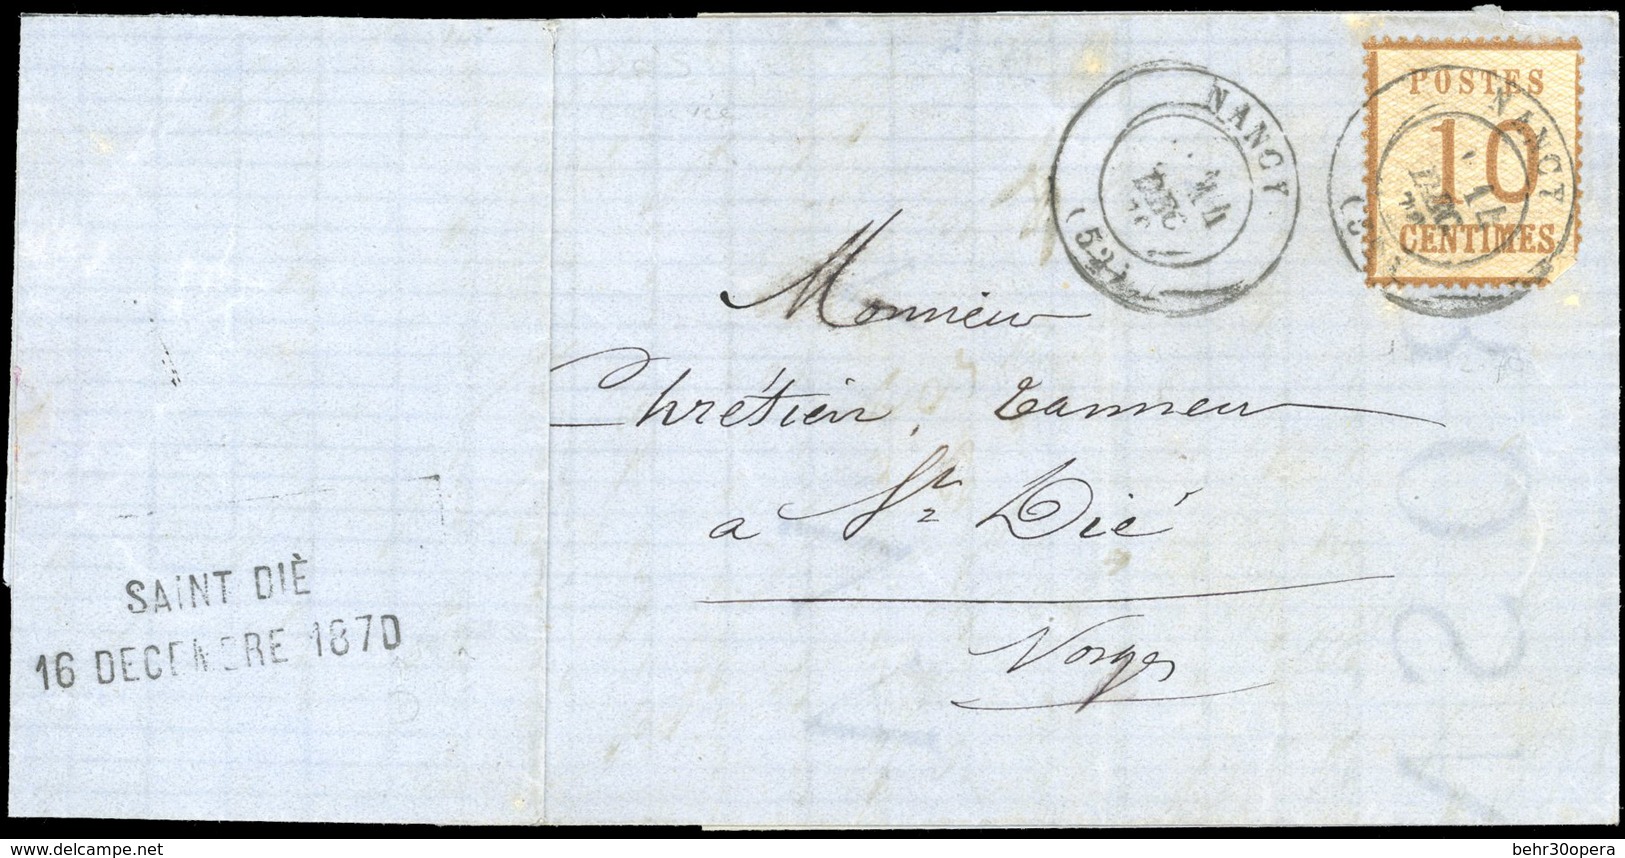 POSTES
10
CENTIMES
NANCY
14
DEC
NANCY
14
DEC
(52)
Monsieur
Chrétien, tanneur
a St Dié
Vosges
SAiNT DIÈ
16 DECEMBRE 1870
delcampe.net
behr30opera